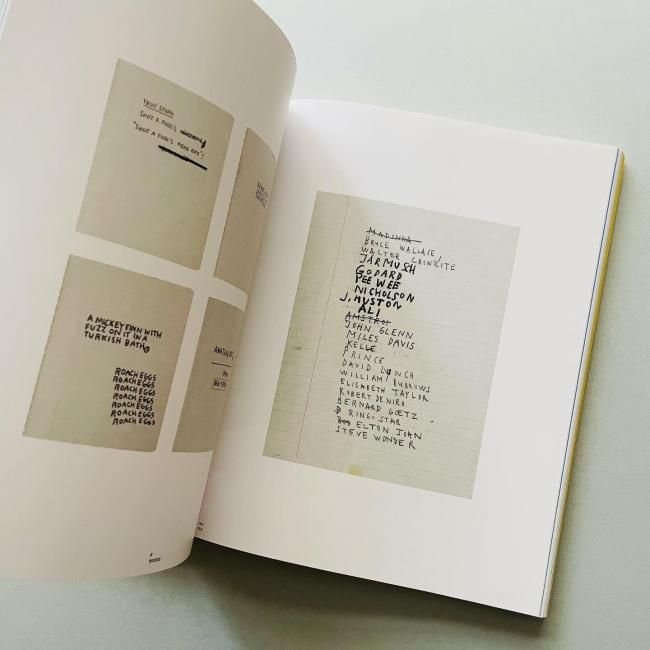 TRUE STORY
SHOT A FOOL'S
"SHOT A FOOL'S HEAD OFF"!
A MICKEY FINN WITH
FUZZ ON IT IN A
TURKISH BATH
ROACH EGGS
ROACH EGGS
ROACH EGGS
ROACH EGGS
ROACH EGGS
ROACH EGGS
ROACH EGGS
MADONNA
BRUCE WALLACE,
WALTER CRONKITE
JARMUSH
GODARD
PEE WEE
NICHOLSON
J. HUSTON
ALI
AMSTROT
JOHN GLENN
MILES DAVIS
KELLE
PRINCE
DAVID LYNCH
WILLIAM BUBROWS
ELISABETH TAYLOR
ROBERT DENIRO
BERNARD GOETZ
RINGO STAR
ELTON JOHN
STEVE WONDER